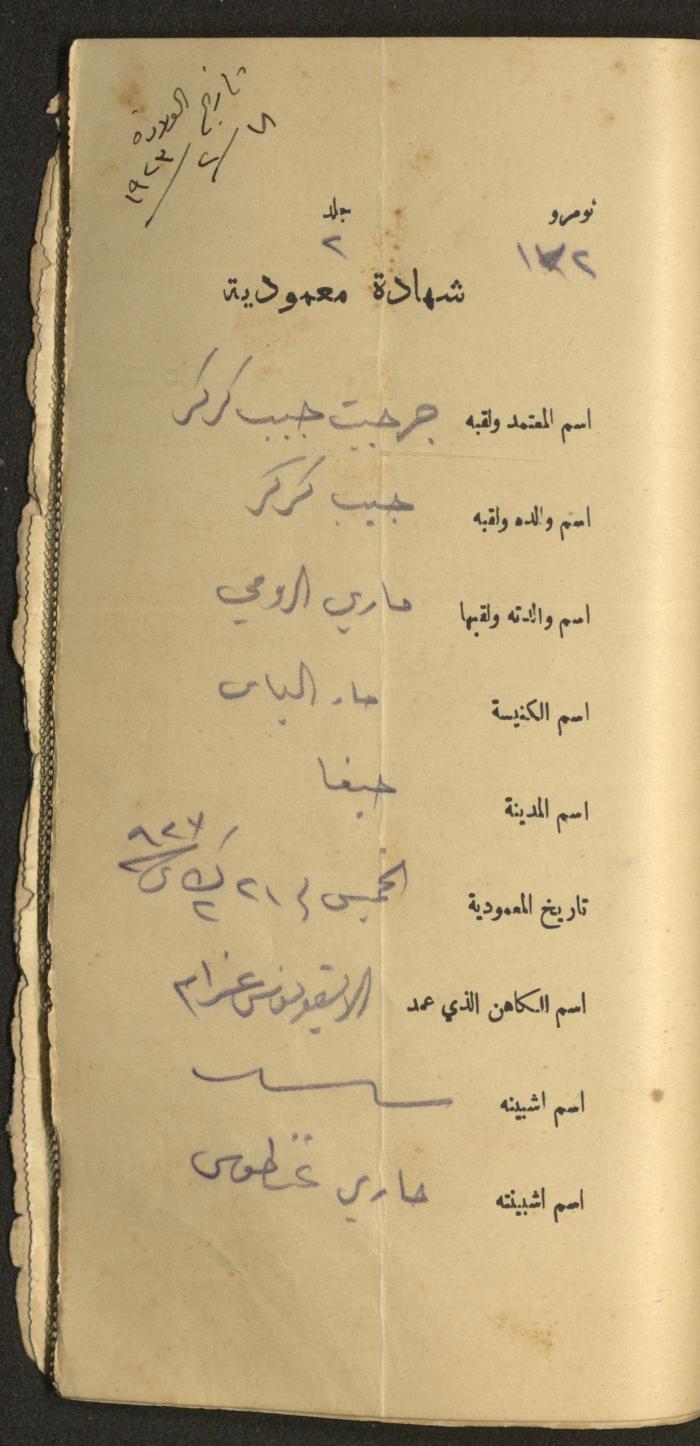 تاريخ الولادة
٨/٢/١٩٢٣
نومرو جلد
١٧٢ ٢
شهادة معمودية
اسم المعتمد ولقبه جرجيت حبيب كركر
اسم والده ولقبه حبيب كركر
اسم والدته ولقبها ماري الرومي
اسم الكنيسة مار الياس
اسم المدينة حيفا
تاريخ المعمودية الخميس في ٢١ ك٢ س ٩٢٧
اسم الكاهن الذي عمد عزام
اسم اشبينه
اسم اشبينته ماري غطوس